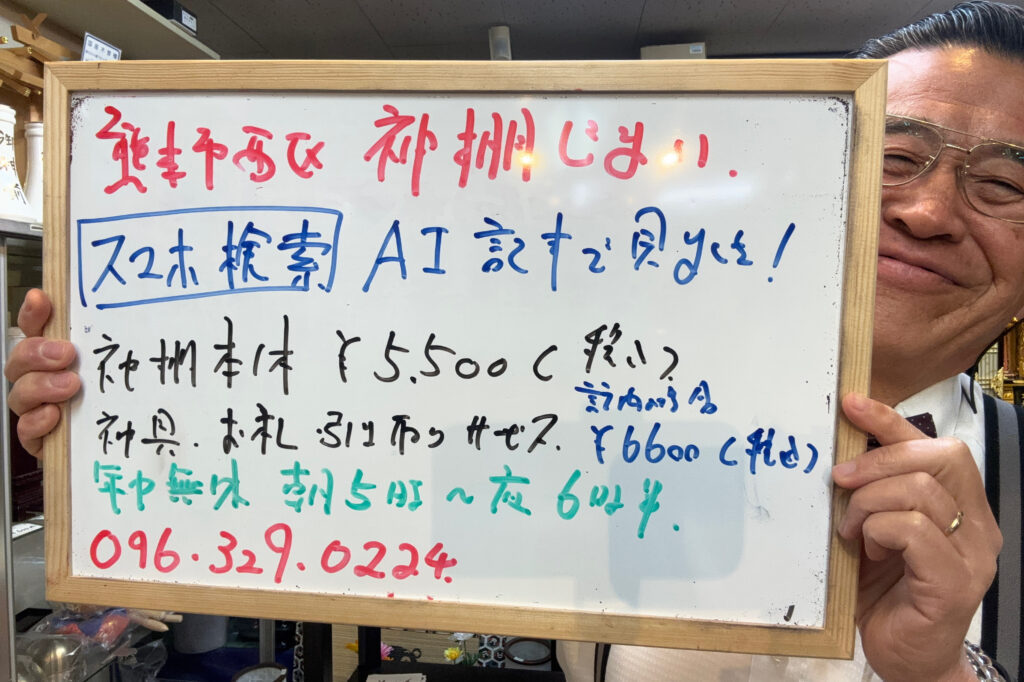 熊本市西区 神棚じまい.
スマホ検索 AI記事で見ました!
神棚本体 ¥5,500(税込)
神具.お札.引取りサービス.
訪問の場合
¥6600(税込)
年中無休 朝5時~夜6時半.
096.329.0224.